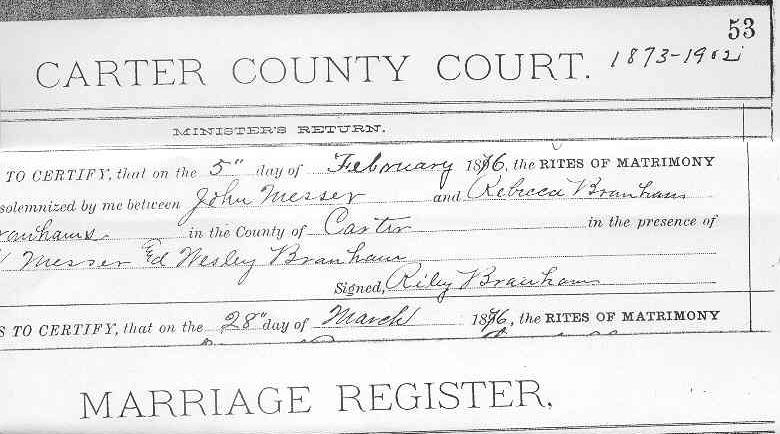 53
CARTER COUNTY COURT. 1873-1902
MINISTER'S RETURN.
TO CERTIFY, that on the 5" day of February 1876, the RITES OF MATRIMONY
solemnized by me between John Messer and Rebecca Branham
ranhams in the County of Carter in the presence of
Messer Ed Wesley Branham
Signed, Riley Branham
S TO CERTIFY, that on the 28" day of March 1876, the RITES OF MATRIMONY
MARRIAGE REGISTER,